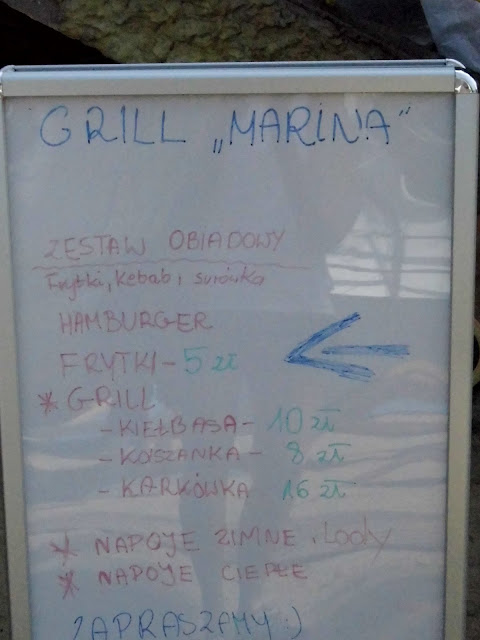 GRILL „MARINA”
ZESTAW OBIADOWY
Frytki, Kebab, surówka
HAMBURGER
FRYTKI - 5 zł
* GRILL
- KIEŁBASA - 10 zł
- KASZANKA - 8 zł
- KARKÓWKA 16 zł
* NAPOJE ZIMNE, Lody
* NAPOJE CIEPŁE
ZAPRASZAMY :)